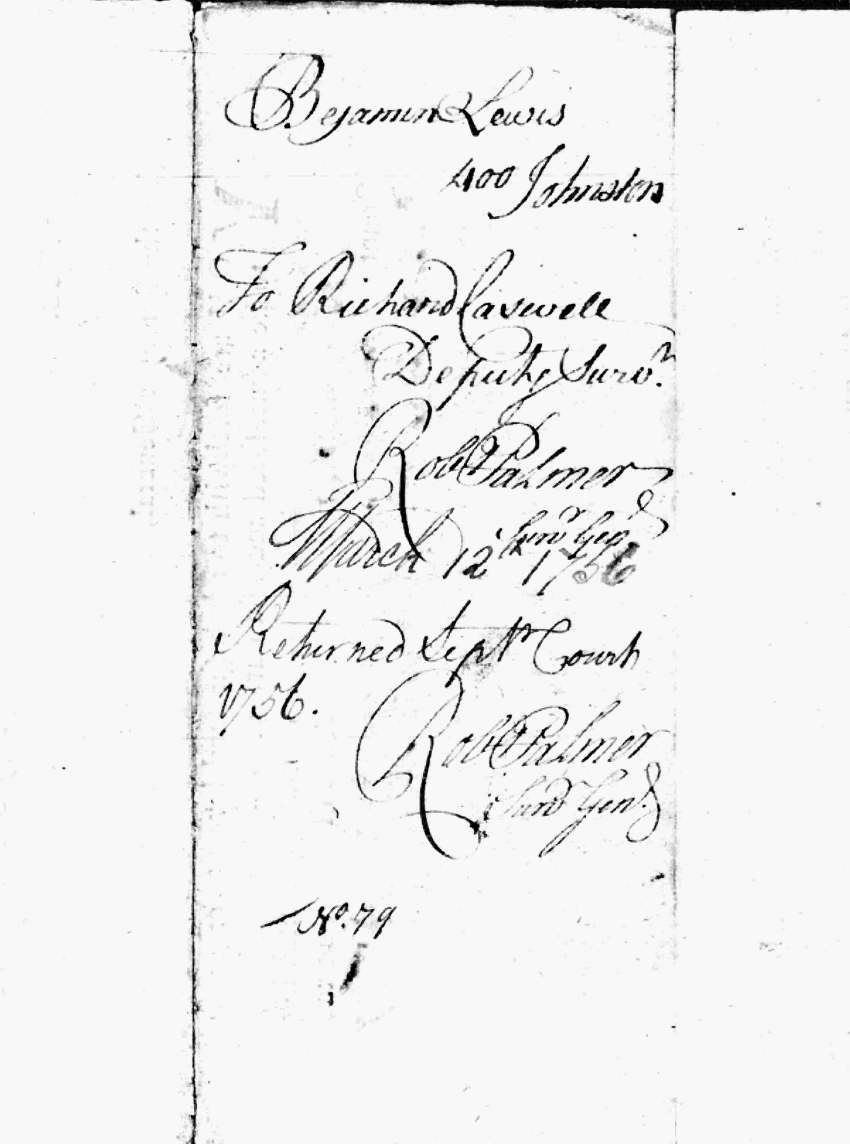 Bejamin Lewis
400 Johnston
To Richard Caswell
Deputy Survr.
Rob Palmer
Survr Genl
March 12th 1756
Returned Septr Court
1756.
Rob Palmer
Survr Genl.
No. 79